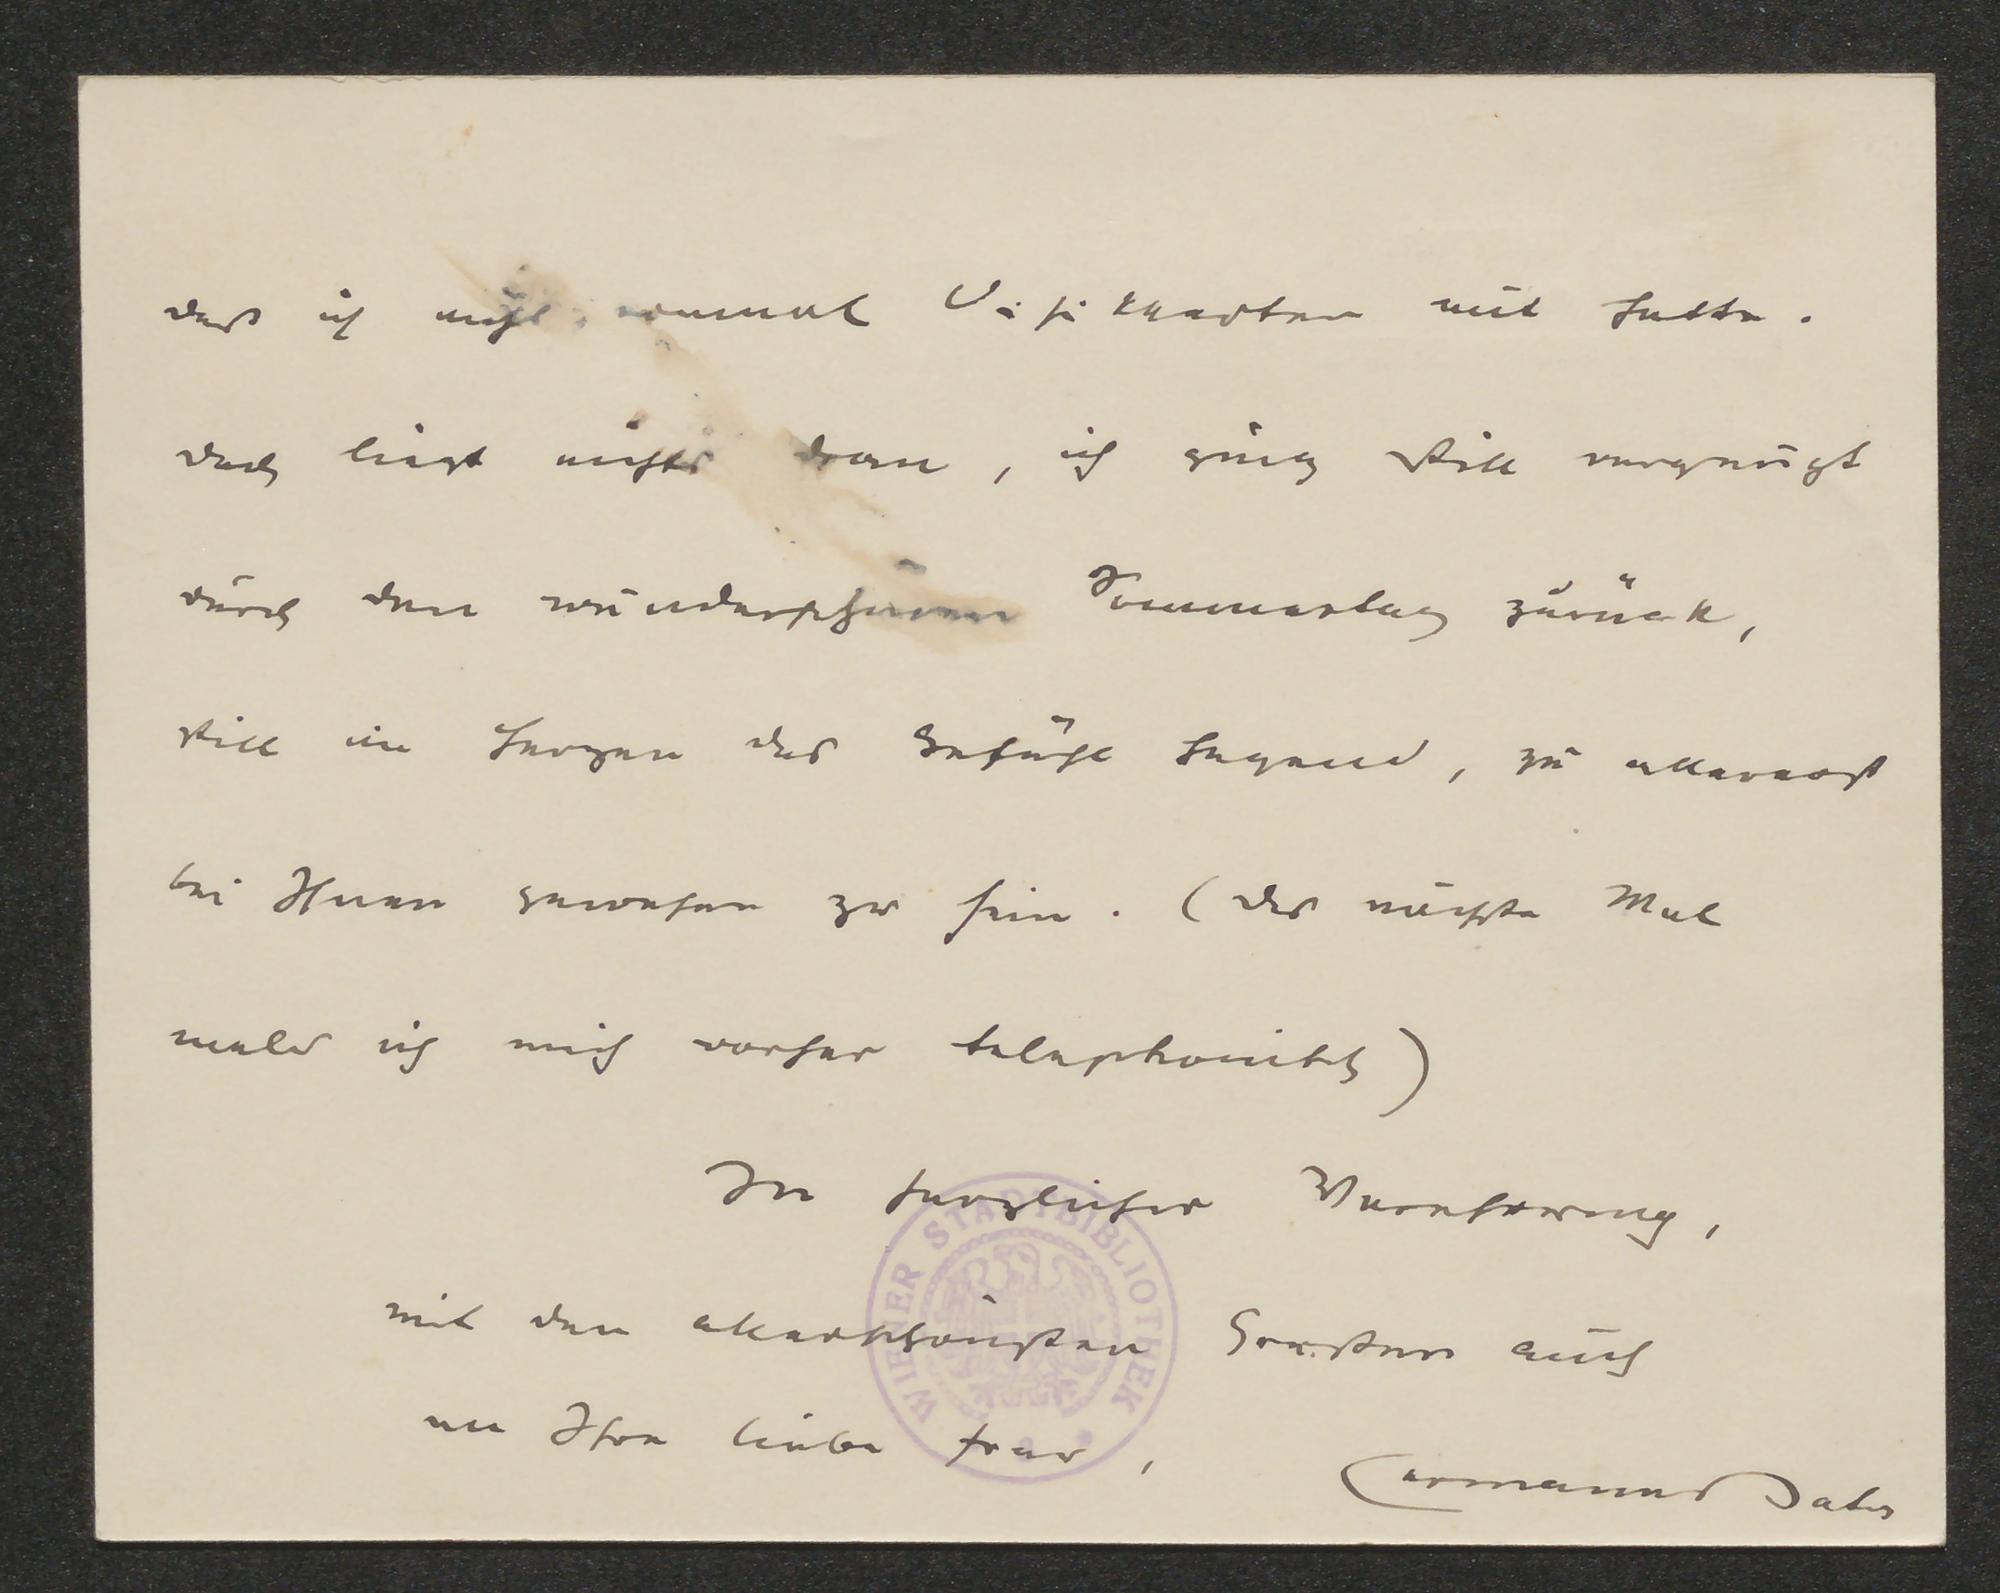 daß ich nicht einmal Visitkarten mit hatte.
doch liegt nichts dran, ich ging still vergnügt
durch den wunderschönen Sommertag zurück,
still im Herzen das Gefühl hegend, zu allererst
bei Ihnen gewesen zu sein. (das nächste Mal
meld ich mich vorher telephonisch)
In herzlicher Verehrung,
mit den allerschönsten Grüßen auch
an Ihre liebe Frau,
Hermann Bahr
WIENER STADTBIBLIOTHEK